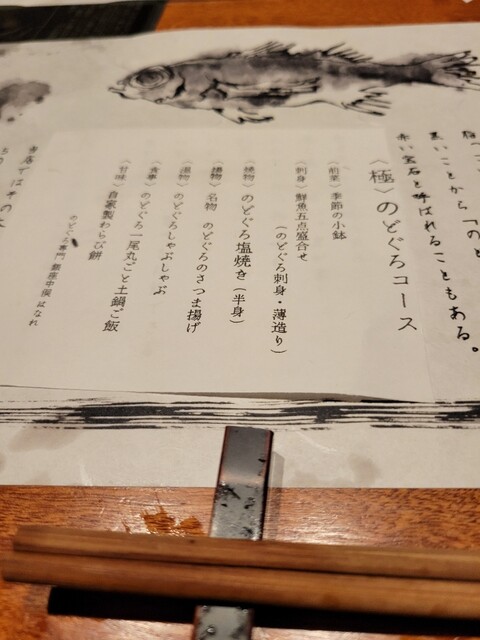 黒いことから「のど
赤い宝石と呼ばれることもある。
〈極〉のどぐろコース
〈前菜〉季節の小鉢
〈刺身〉鮮魚五点盛合せ
(のどぐろ刺身・薄造り)
〈焼物〉のどぐろ塩焼き(半身)
〈揚物〉名物 のどぐろのさつま揚げ
〈温物〉のどぐろしゃぶしゃぶ
〈食事〉のどぐろ一尾丸ごと土鍋ご飯
〈甘味〉自家製わらび餅
のどぐろ専門 銀座中俣 はなれ
当店ではその